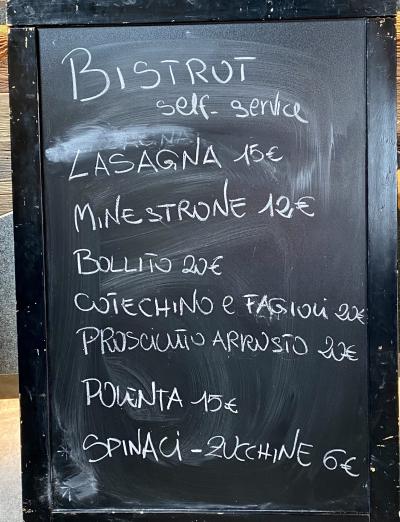 BISTROT
self-service
LASAGNA 15€
MINESTRONE 12€
BOLLITO 20€
COTECHINO e FAGIOLI 20€
PROSCIUTTO ARROSTO 20€
POLENTA 15€
SPINACI - ZUCCHINE 6€